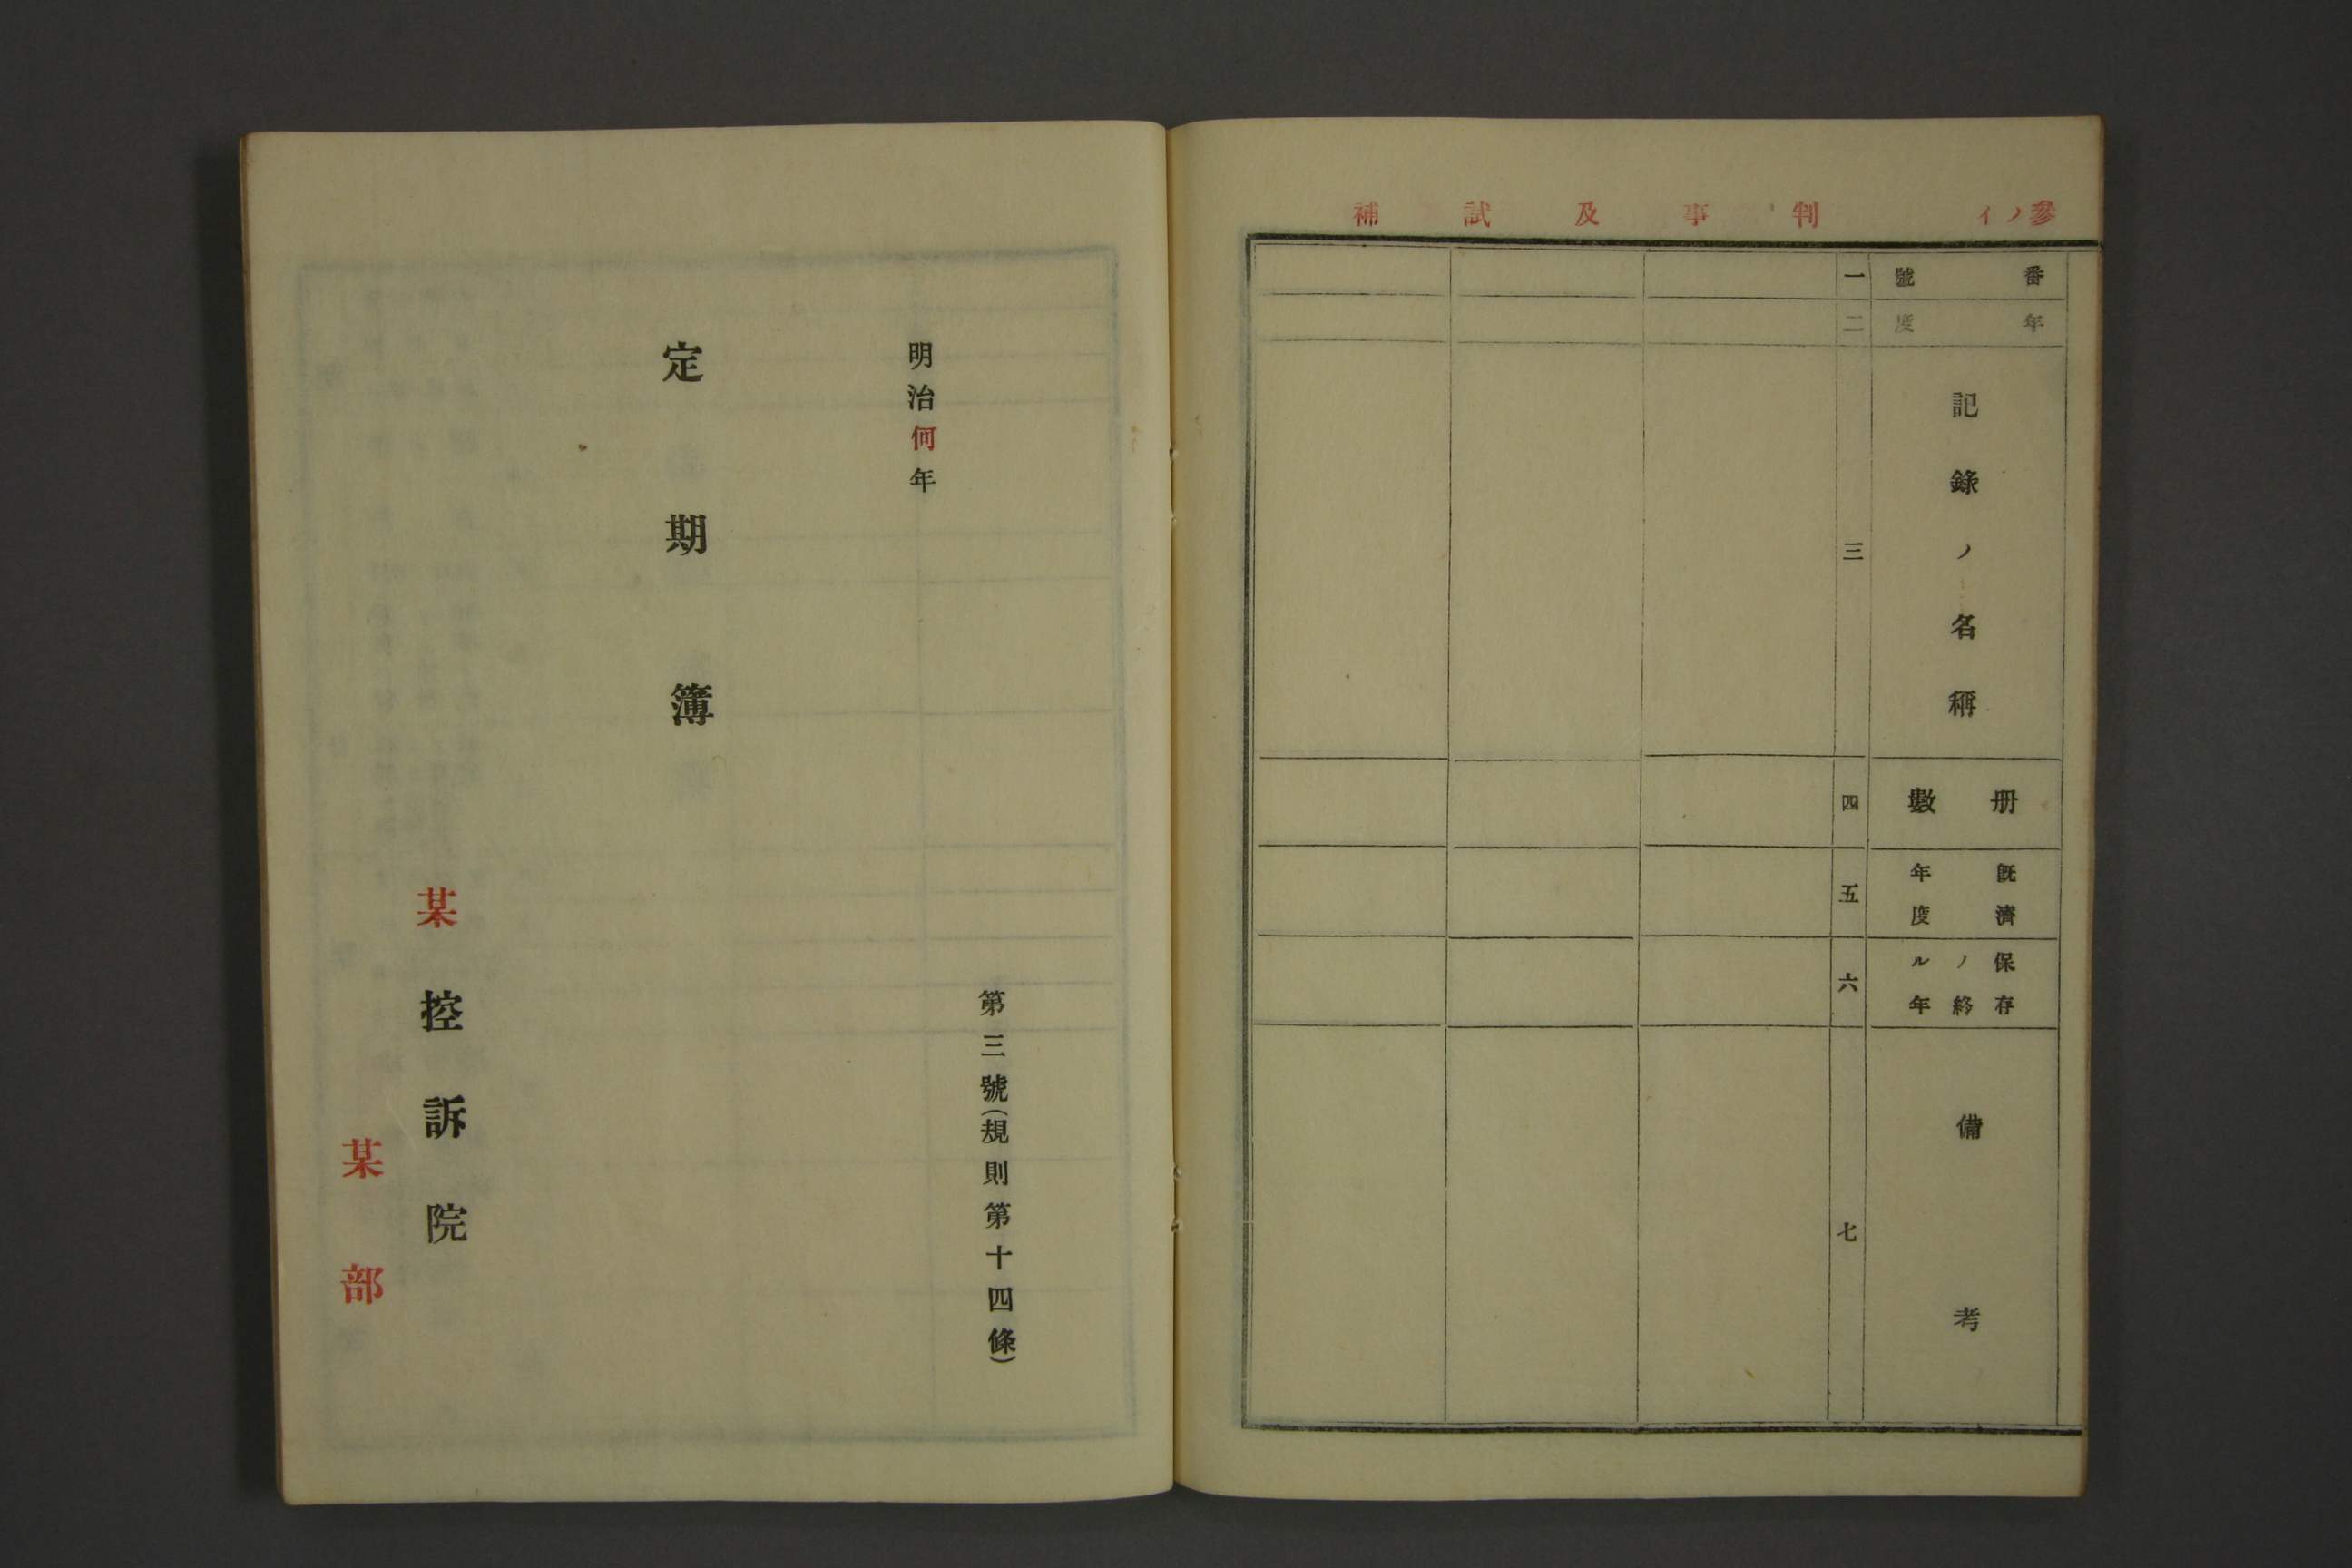 參ノイ
判事及試補
番號
一
年度
二
記錄ノ名稱
三
册數
四
既濟年度
五
保存ノ終ル年
六
備考
七
第三號(規則第十四條)
明治何年
定期簿
某控訴院
某部